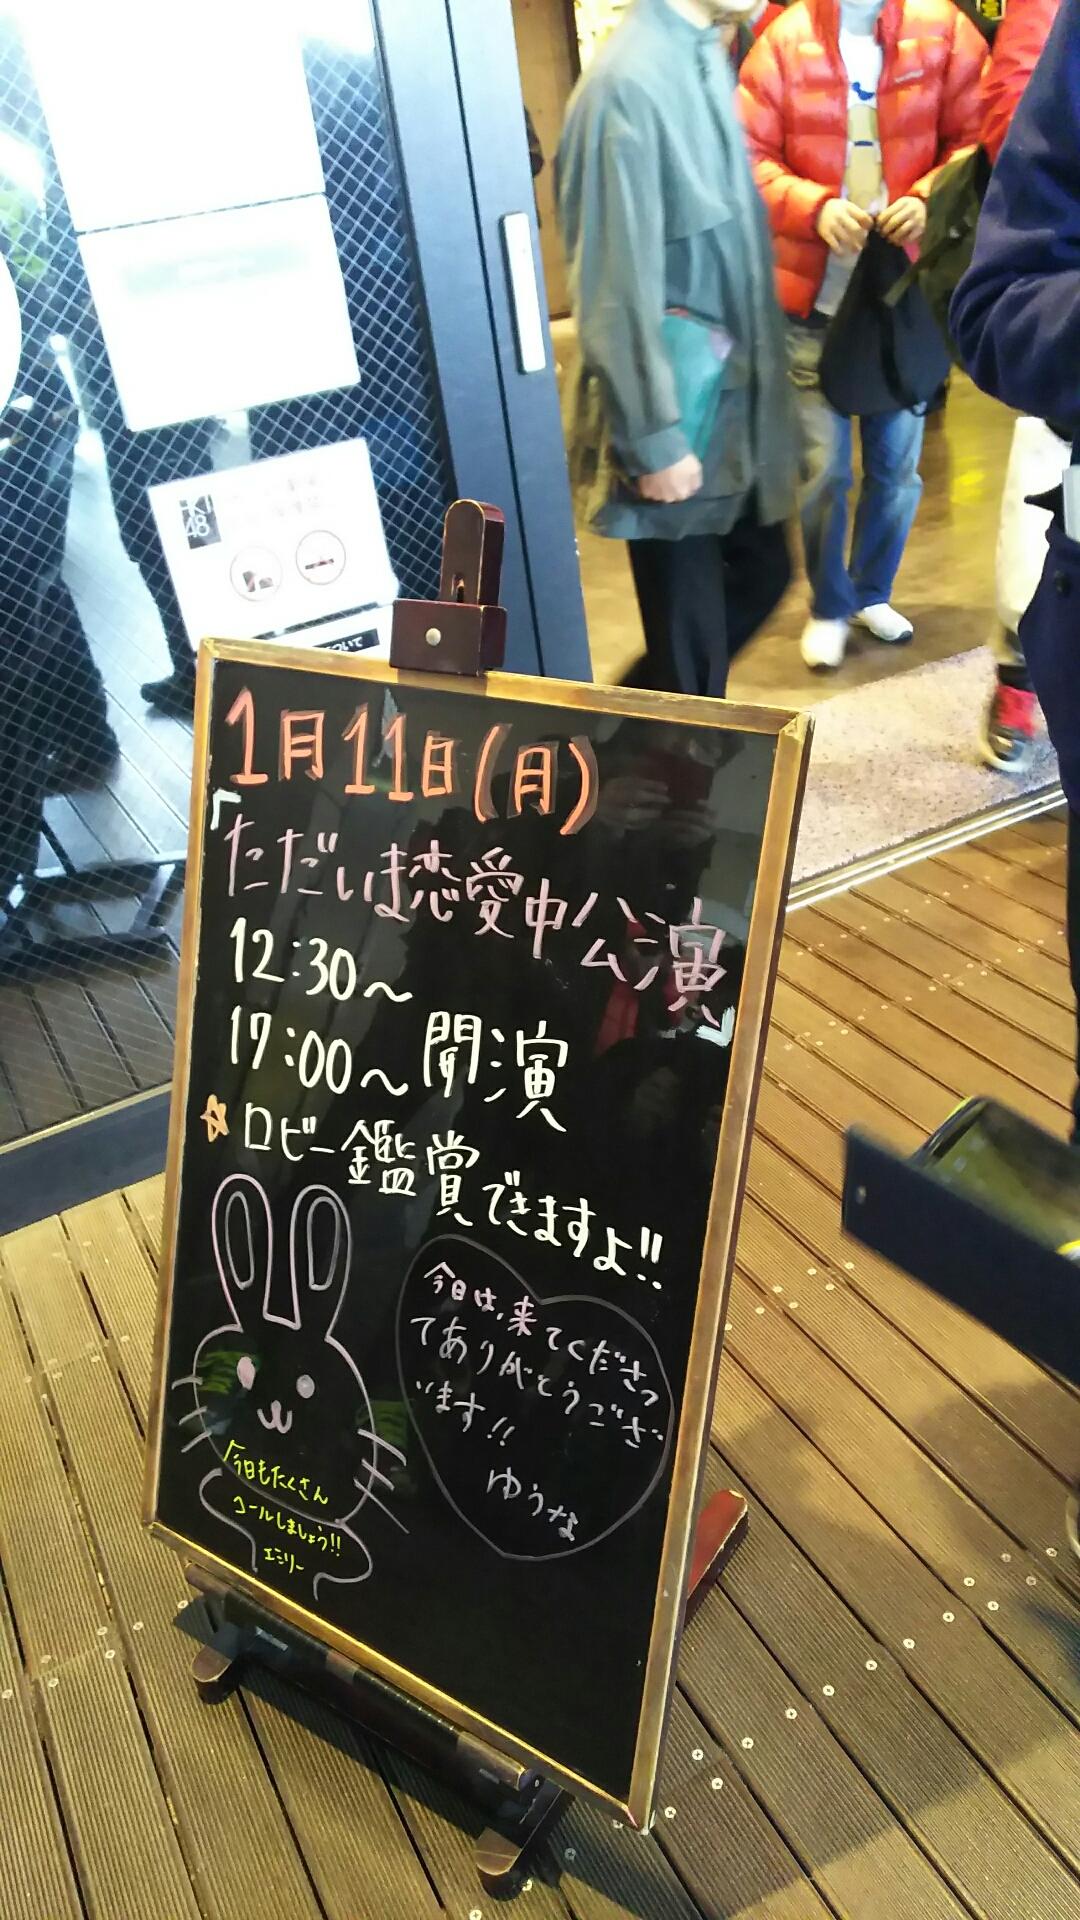 HKT
48
について
1月11日(月)
「ただいま恋愛中公演」
12:30～
17:00～開演
☆ロビー鑑賞できますよ!!
今日は、来てくださっ
てありがとうござ
います!!
ゆうな
「今日もたくさん
コールしましょう!!
エミリー